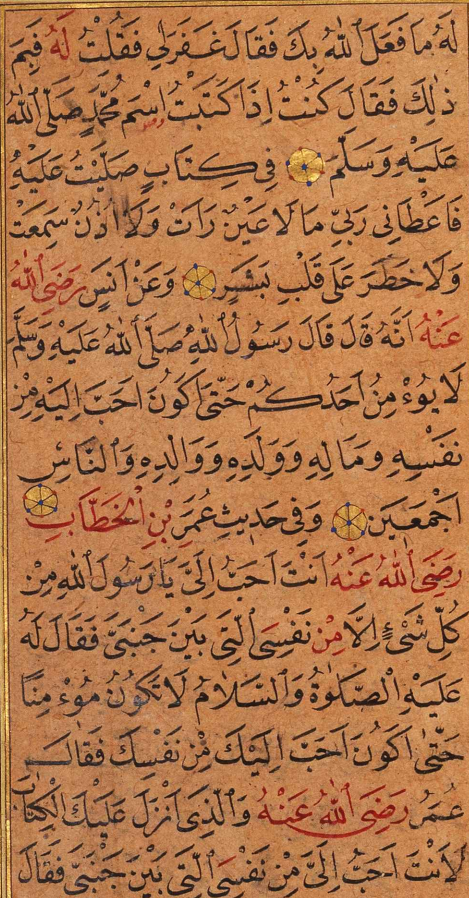 لَهُ مَا فَعَلَ ٱللّٰهُ بِكَ فَقَالَ غَفَرَلِى فَقُلْتُ لَهُ فَبِمَ
ذٰلِكَ فَقَالَ كُنْتُ اِذَا كَتَبْتُ اِسْمَ مُحَمَّدٍ صَلَّى ٱللّٰهُ
عَلَيْهِ وَسَلَّمَ فِى كِتَابٍ صَلَّيْتُ عَلَيْهِ
فَاَعْطَانِى رَبِّى مَا لَا عَيْنٌ رَاَتْ وَلَا اُذُنٌ سَمِعَتْ
وَلَا خَطَرَ عَلَى قَلْبِ بَشَرٍ وَعَنْ اَنَسٍ رَضِىَ ٱللّٰهُ
عَنْهُ اَنَّهُ قَالَ قَالَ رَسُولُ ٱللّٰهِ صَلَّى ٱللّٰهُ عَلَيْهِ وَسَلَّمَ
لَا يُوءْمِنُ اَحَدُكُمْ حَتّٰى اَكُونَ اَحَبَّ اِلَيْهِ مِنْ
نَفْسِهِ وَمَالِهِ وَوَلَدِهِ وَوَالِدِهِ وَٱلنَّاسِ
اَجْمَعِينَ وَفِى حَدِيثِ عُمَرَ بْنِ ٱلْخَطَّابِ
رَضِىَ ٱللّٰهُ عَنْهُ اَنْتَ اَحَبُّ اِلَىَّ يَا رَسُولَ ٱللّٰهِ مِنْ
كُلِّ شَىْءٍ اِلَّا مِنْ نَفْسِىَ ٱلَّتِى بَيْنَ جَنْبَىَّ فَقَالَ لَهُ
عَلَيْهِ ٱلصَّلٰوةُ وَٱلسَّلَامُ لَا تَكُونُ مُوءْمِنًا
حَتّٰى اَكُونَ اَحَبَّ اِلَيْكَ مِنْ نَفْسِكَ فَقَالَ
عُمَرُ رَضِىَ ٱللّٰهُ عَنْهُ وَٱلَّذِى اَنْزَلَ عَلَيْكَ ٱلْكِتَابَ
لَاَنْتَ اَحَبُّ اِلَىَّ مِنْ نَفْسِىَ ٱلَّتِى بَيْنَ جَنْبَىَّ فَقَالَ